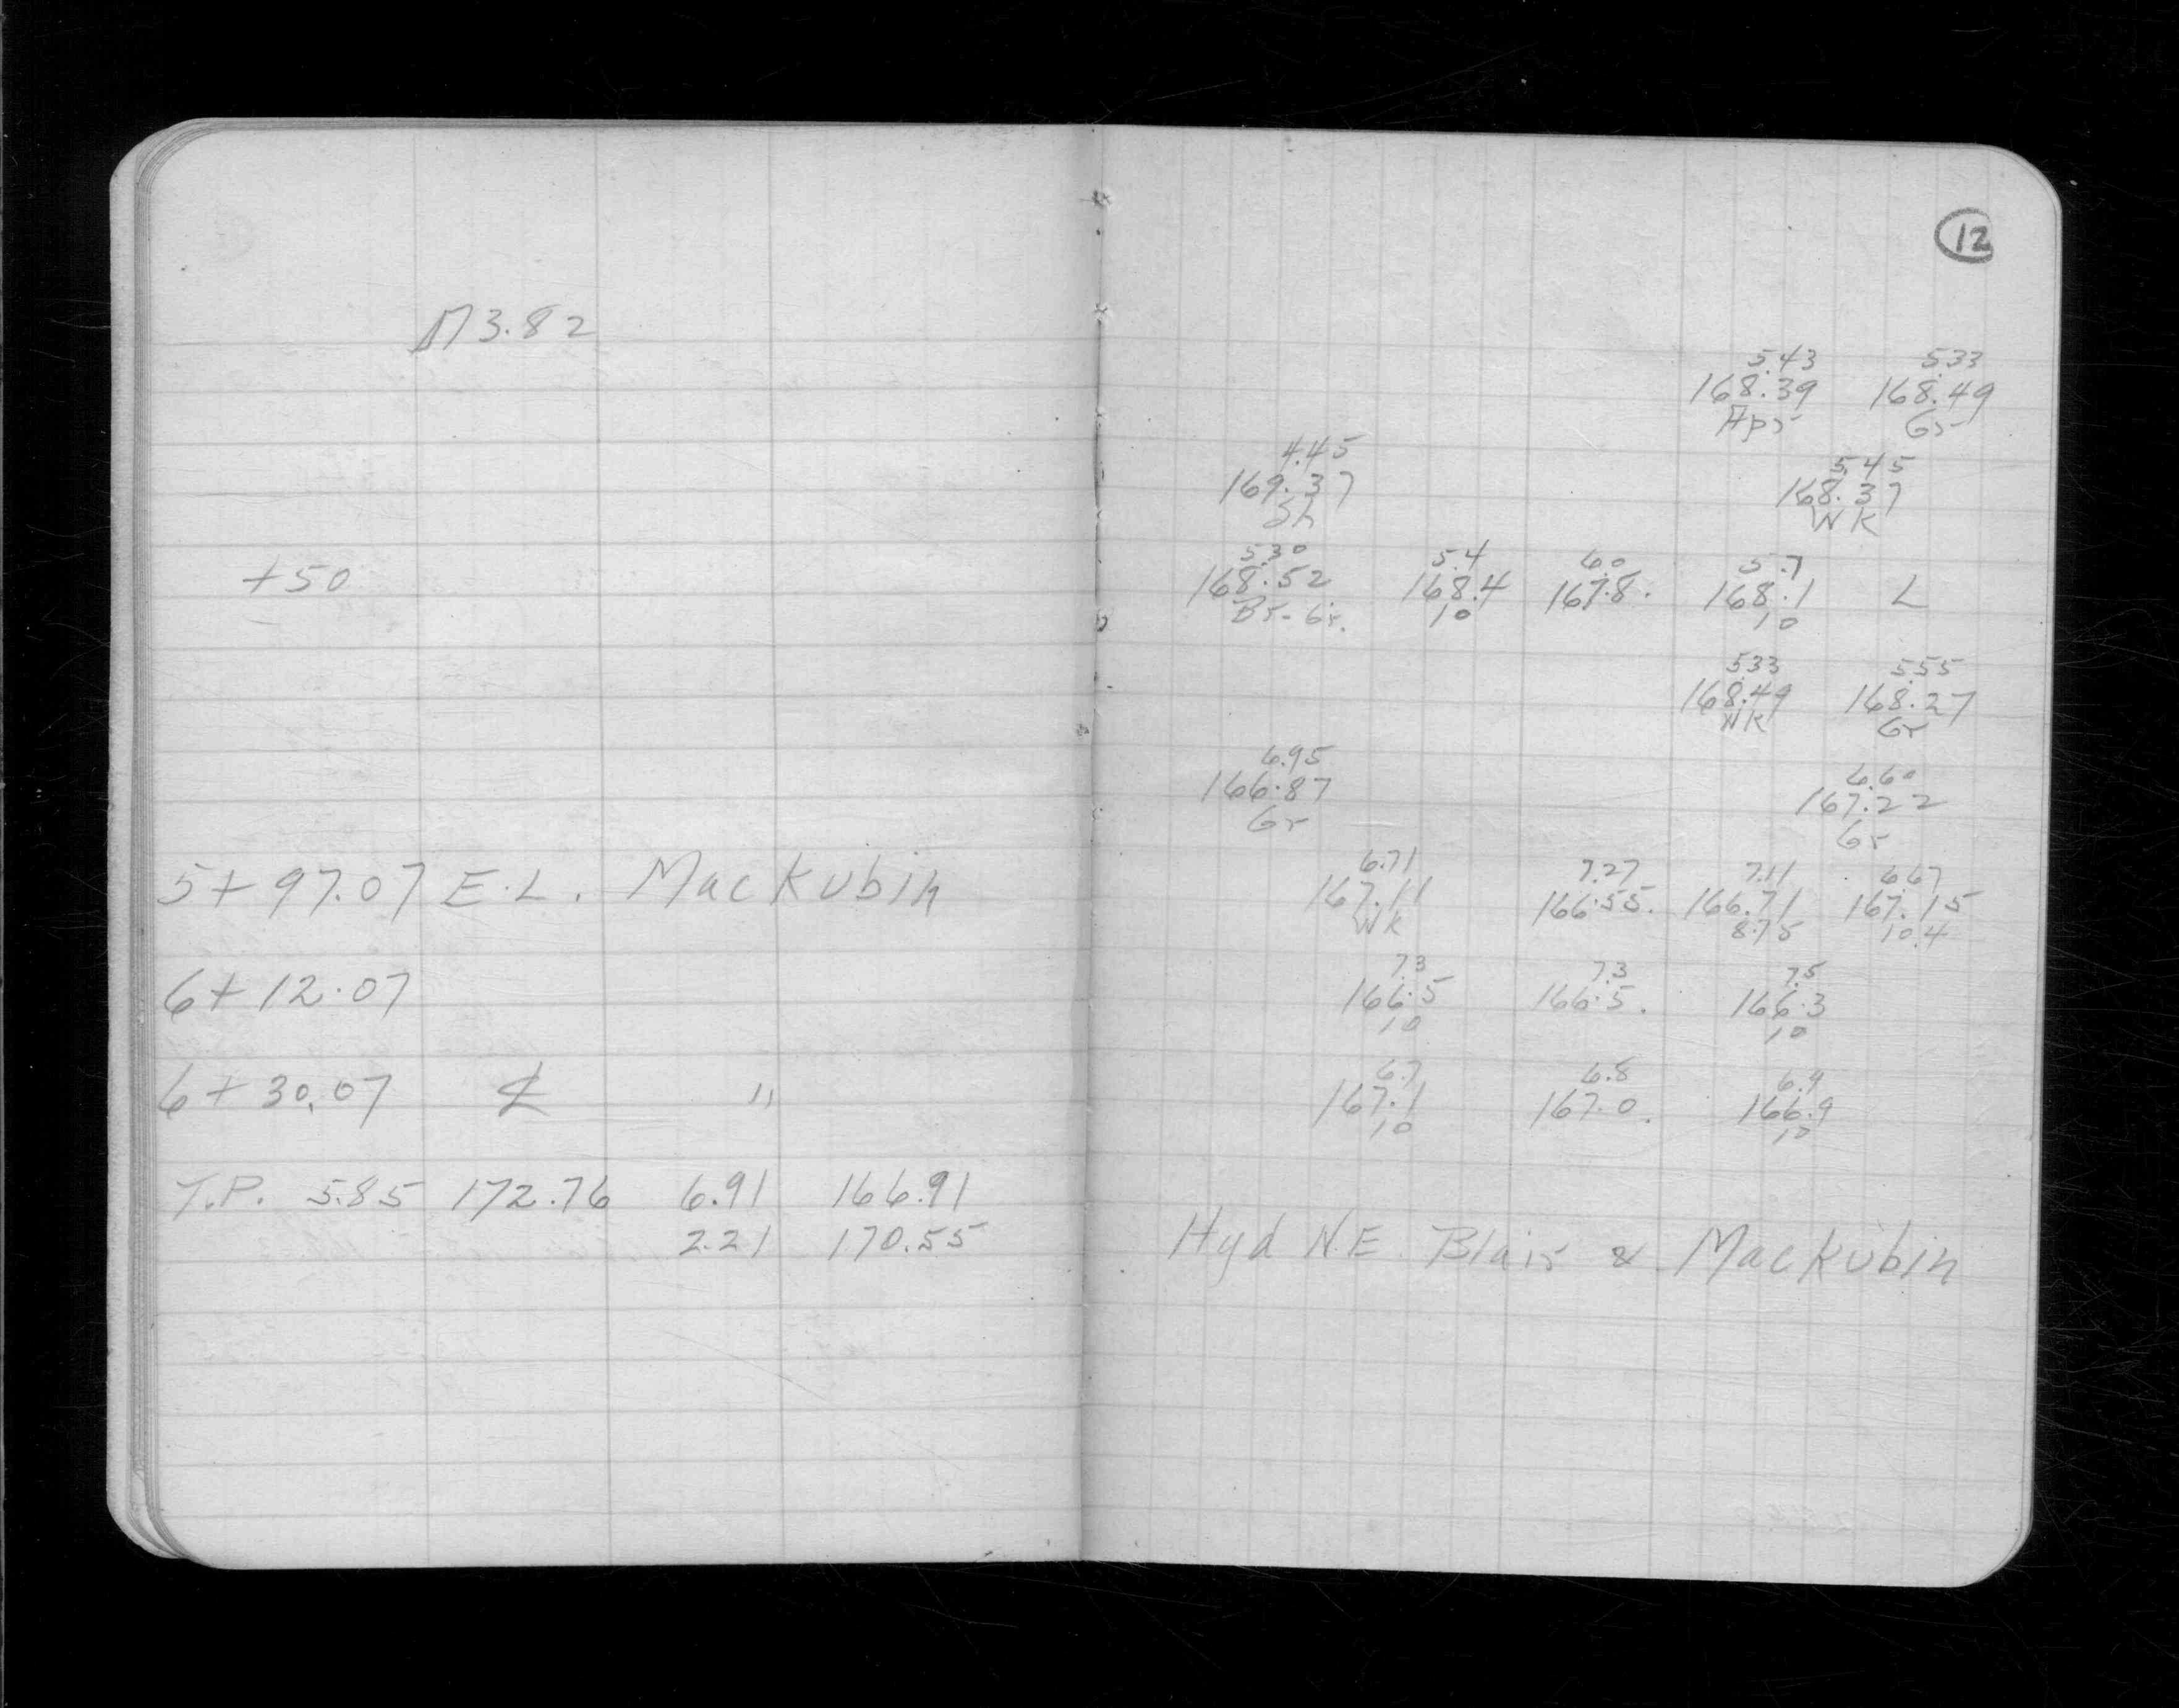 12
173.82
5.43 5.33
168.39 168.49
Apr Gr
4.45 5.45
169.37 168.37
Sh WK
5.30 5.4 6.0 5.7
+50 168.52 168.4 167.8. 168.1 L
Br-Gr. 10 10
5.33 5.55
168.49 168.27
WK Gr
6.95 6.60
166.87 167.22
Gr Gr
6.71 7.27 7.11 6.67
5+97.07 E.L. Mackubin 167.11 166.55. 166.71 167.15
WK 8.75 10.4
7.3 7.3 7.5
6+12.07 166.5 166.5. 166.3
10 10
6.7 6.8 6.9
6+30.07 ℄ " 167.1 167.0. 166.9
10 10
T.P. 5.85 172.76 6.91 166.91
2.21 170.55 Hyd N.E. Blair & Mackubin